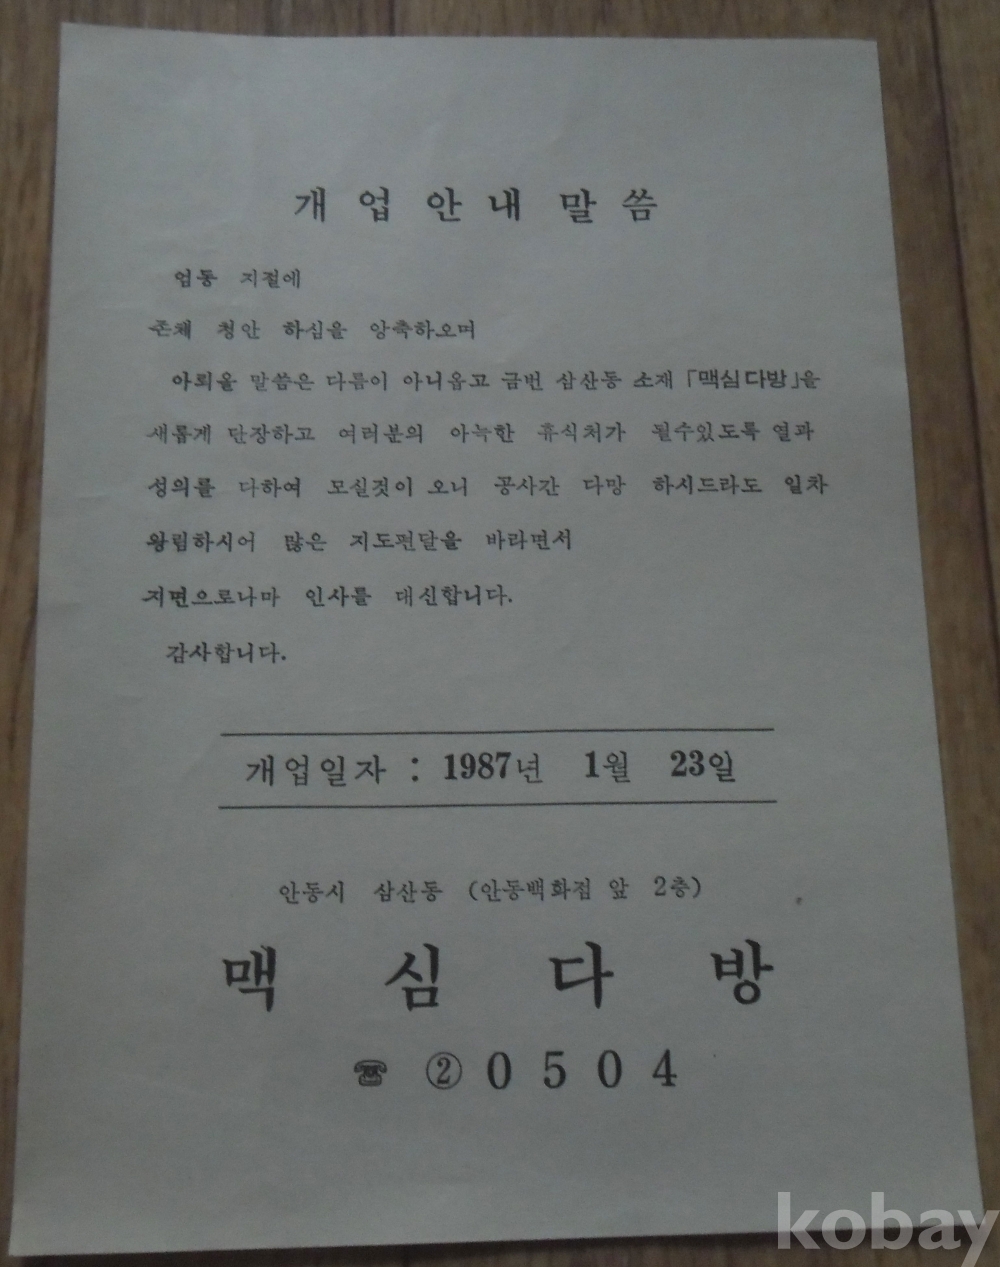 개업안내말씀
엄동 지절에
존체 청안 하심을 앙축하오며
아뢰올 말씀은 다름이 아니옵고 금번 삼산동 소재 「맥심다방」을
새롭게 단장하고 여러분의 아늑한 휴식처가 될수있도록 열과
성의를 다하여 모실것이 오니 공사간 다망 하시드라도 일차
왕림하시어 많은 지도편달을 바라면서
지면으로나마 인사를 대신합니다.
감사합니다.
개업일자 : 1987년 1월 23일
안동시 삼산동 (안동백화점 앞 2층)
맥심다방
☎ ② 0504
kobay